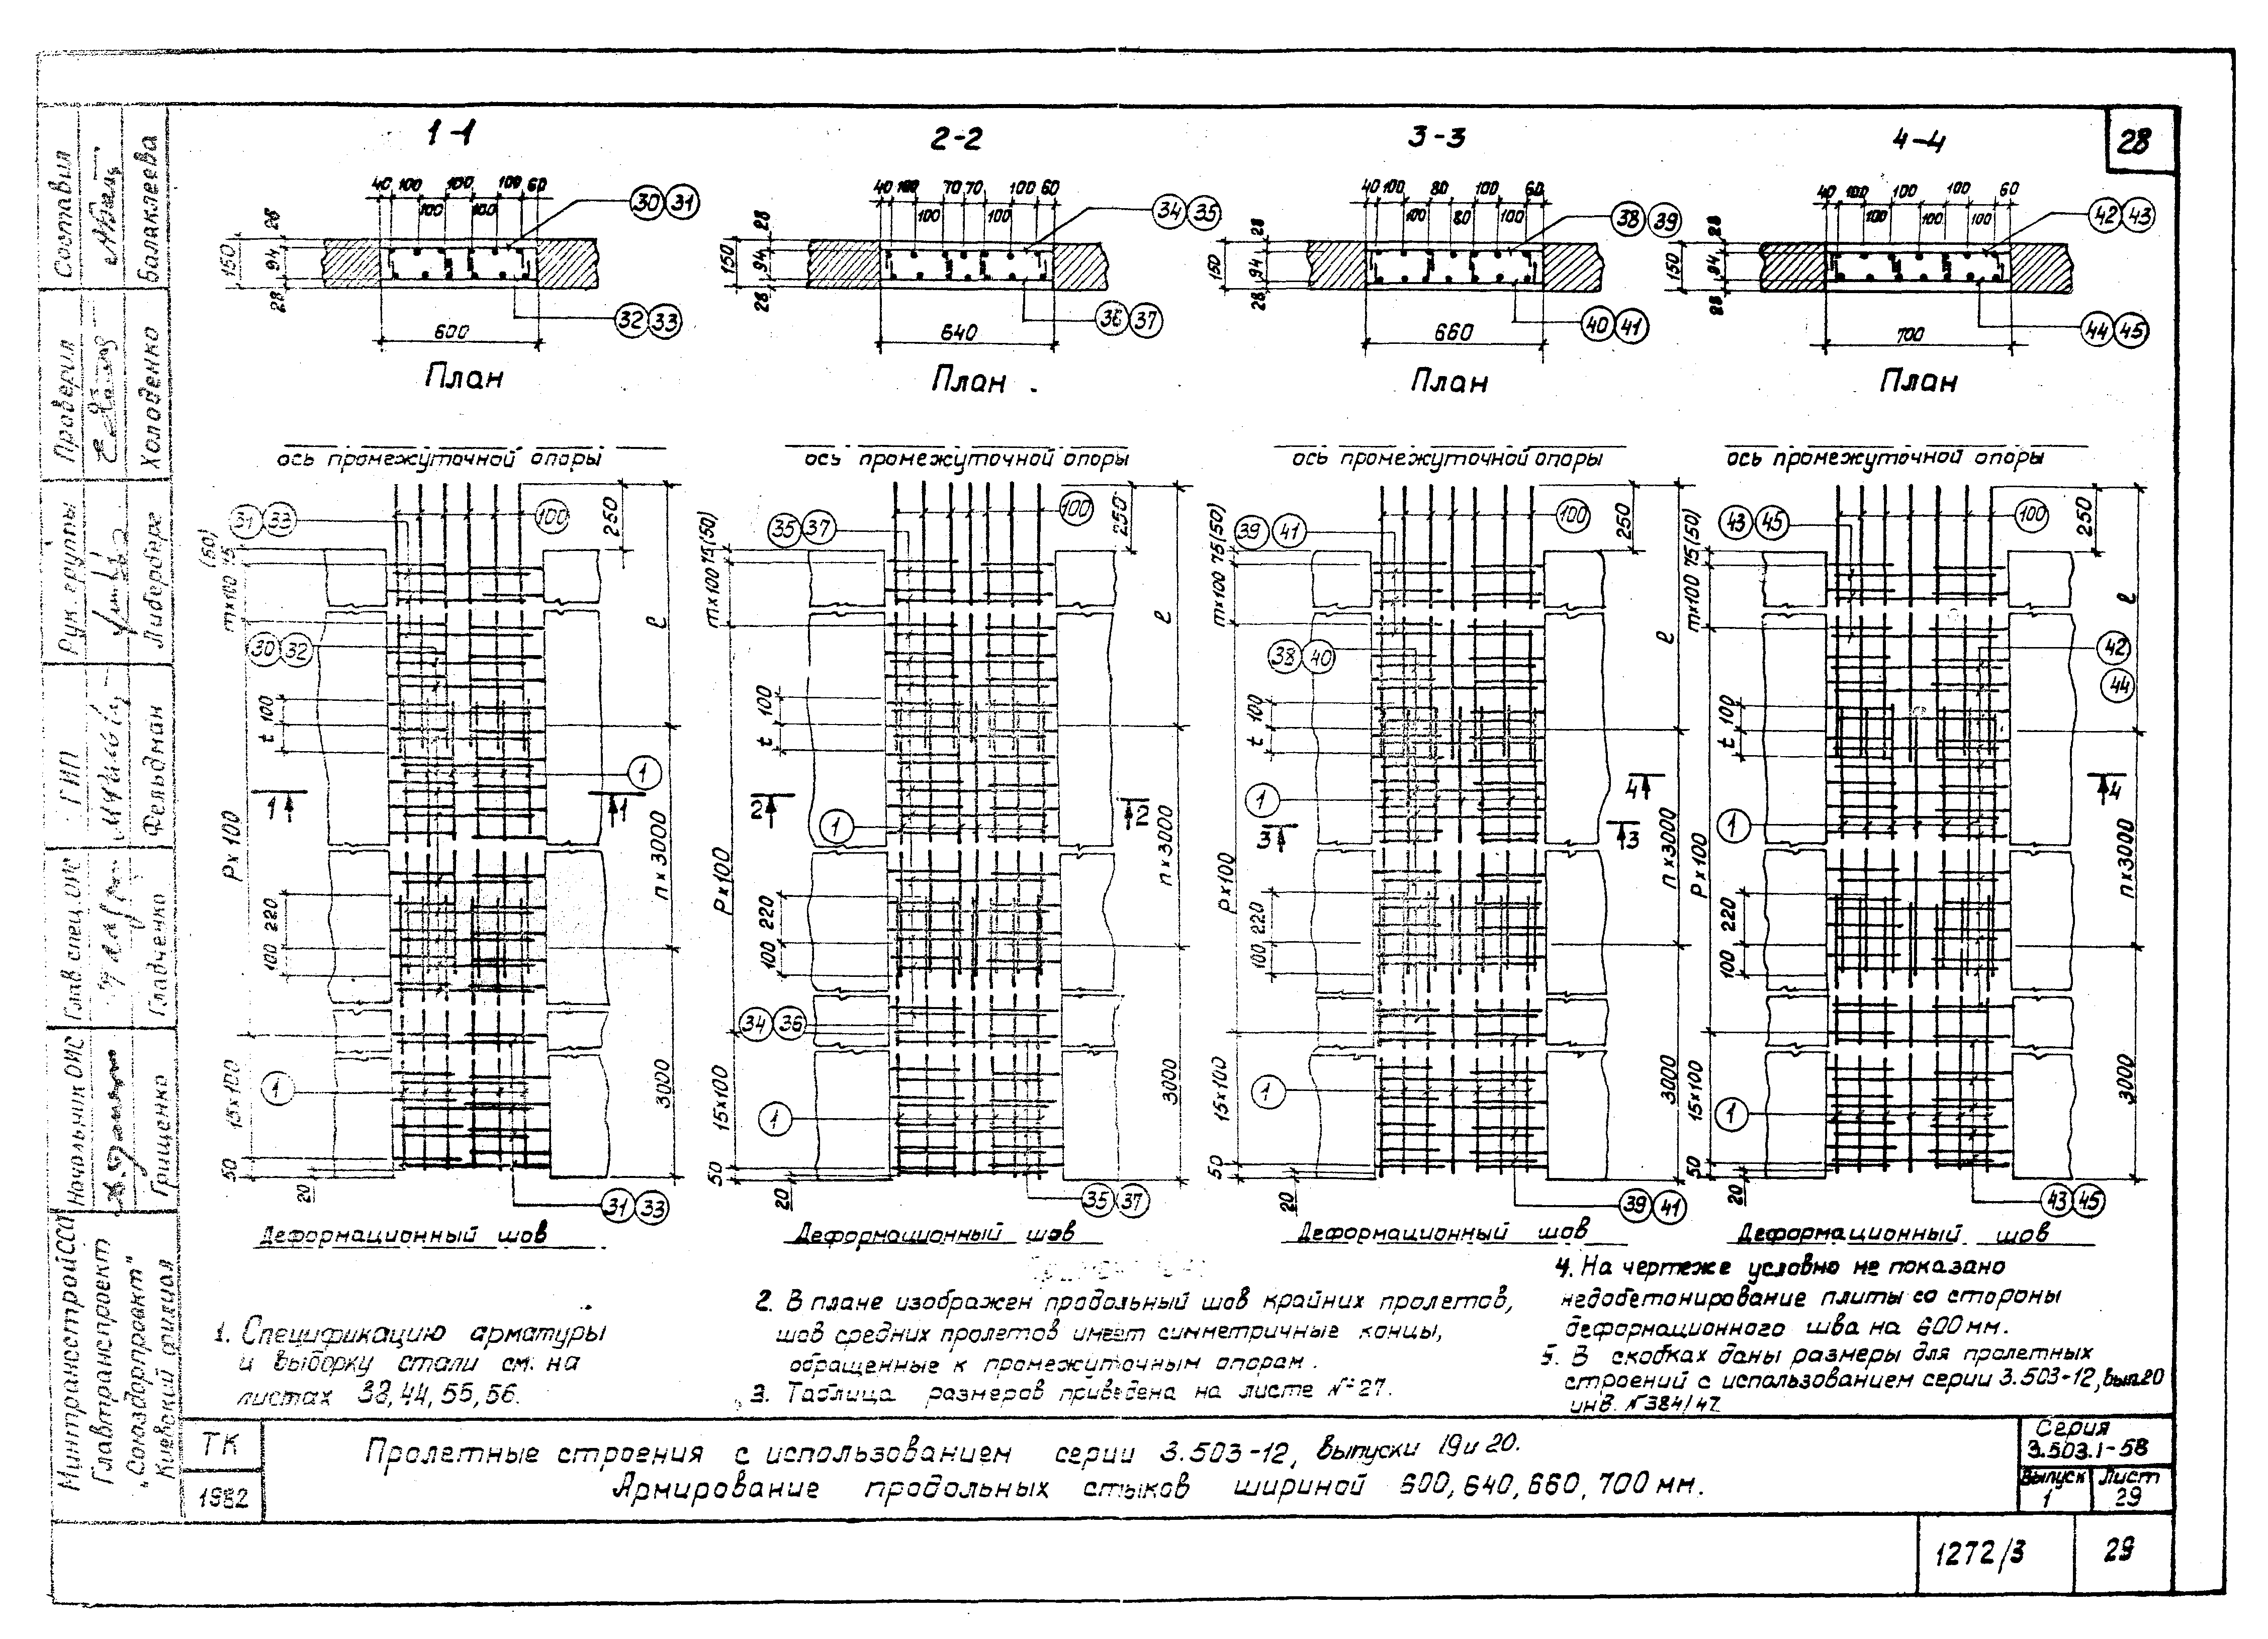 28
1-1
2-2
3-3
4-4
40 100 100 100 60
100 100
28
150
94
28
600
30 31
32 33
40 100 70 70 100 60
100 100
28
150
94
28
640
34 35
36 37
40 100 80 100 60
100 80 100
28
150
94
28
660
38 39
40 41
40 100 100 100 60
100 100 100
28
150
94
28
700
42 43
44 45
План
План
План
План
ось промежуточной опоры
ось промежуточной опоры
ось промежуточной опоры
ось промежуточной опоры
31 33
100
250
(50)
75
m×100
30 32
100
t
ℓ
1
1
1
P×100
n×3000
220
100
15×100
1
3000
50
20
31 33
35 37
100
250
75(50)
m×100
100
t
ℓ
2
2
1
P×100
n×3000
220
100
34 36
15×100
1
3000
50
20
35 37
39 41
100
250
75(50)
m×100
38 40
100
t
ℓ
1
4
3
3
P×100
n×3000
220
100
15×100
1
3000
50
20
39 41
43 45
100
250
75(50)
m×100
42
44
100
t
ℓ
4
1
P×100
n×3000
220
100
15×100
1
3000
50
20
43 45
Деформационный шов
Деформационный шов
Деформационный шов
Деформационный шов
1. Спецификацию арматуры
и выборку стали см. на
листах 38, 44, 55, 56.
2. В плане изображен продольный шов крайних пролетов,
шов средних пролетов имеет симметричные концы,
обращенные к промежуточным опорам.
3. Таблица размеров приведена на листе № 27.
4. На чертеже условно не показано
недобетонирование плиты со стороны
деформационного шва на 600 мм.
5. В скобках даны размеры для пролетных
строений с использованием серии 3.503-12, вып. 20
инв. № 384/47
ТК
1982
Пролетные строения с использованием серии 3.503-12, выпуски 19 и 20.
Армирование продольных стыков шириной 600, 640, 660, 700 мм.
Серия
3.503.1-58
Выпуск
1
Лист
29
1272/3
29
Составил
Балаклеева
Проверил
Холоденко
Рук. группы
Либерберг
ГИП
Фельдман
Глав. спец. ОИС
Гладченко
Начальник ОИС
Грищенко
Минтрансстрой СССР
Главтранспроект
"Союздорпроект"
Киевский филиал